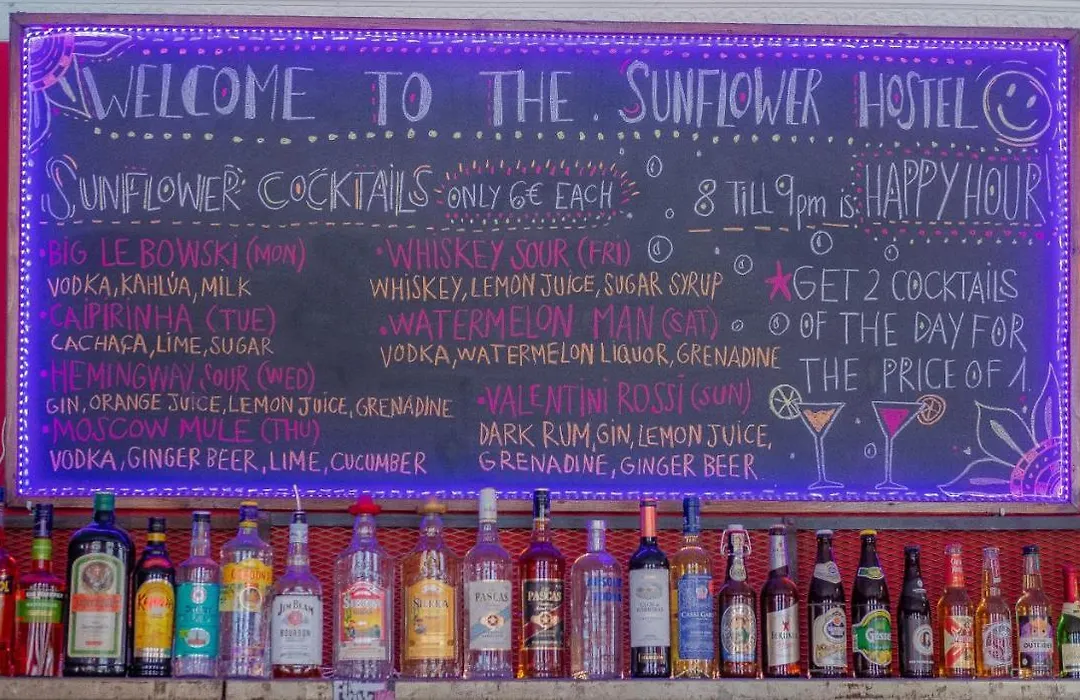 WELCOME TO THE . SUNFLOWER HOSTEL
SUNFLOWER COCKTAILS ONLY 6€ EACH
8 TILL 9pm is: HAPPY HOUR
•BIG LEBOWSKI (MON)
VODKA, KAHLÚA, MILK
•CAIPIRINHA (TUE)
CACHAÇA, LIME, SUGAR
•HEMINGWAY SOUR (WED)
GIN, ORANGE JUICE, LEMON JUICE, GRENADINE
•MOSCOW MULE (THU)
VODKA, GINGER BEER, LIME, CUCUMBER
•WHISKEY SOUR (FRI)
WHISKEY, LEMON JUICE, SUGAR SYRUP
•WATERMELON MAN (SAT)
VODKA, WATERMELON LIQUOR, GRENADINE
•VALENTINI ROSSI (SUN)
DARK RUM, GIN, LEMON JUICE,
GRENADINE, GINGER BEER
★GET 2 COCKTAILS
OF THE DAY FOR
THE PRICE OF 1
JIM BEAM
BOURBON
SIERRA
SIERRA
PASCAS
PASCAS
ABSOLUT
Gösser
OUTSIDER